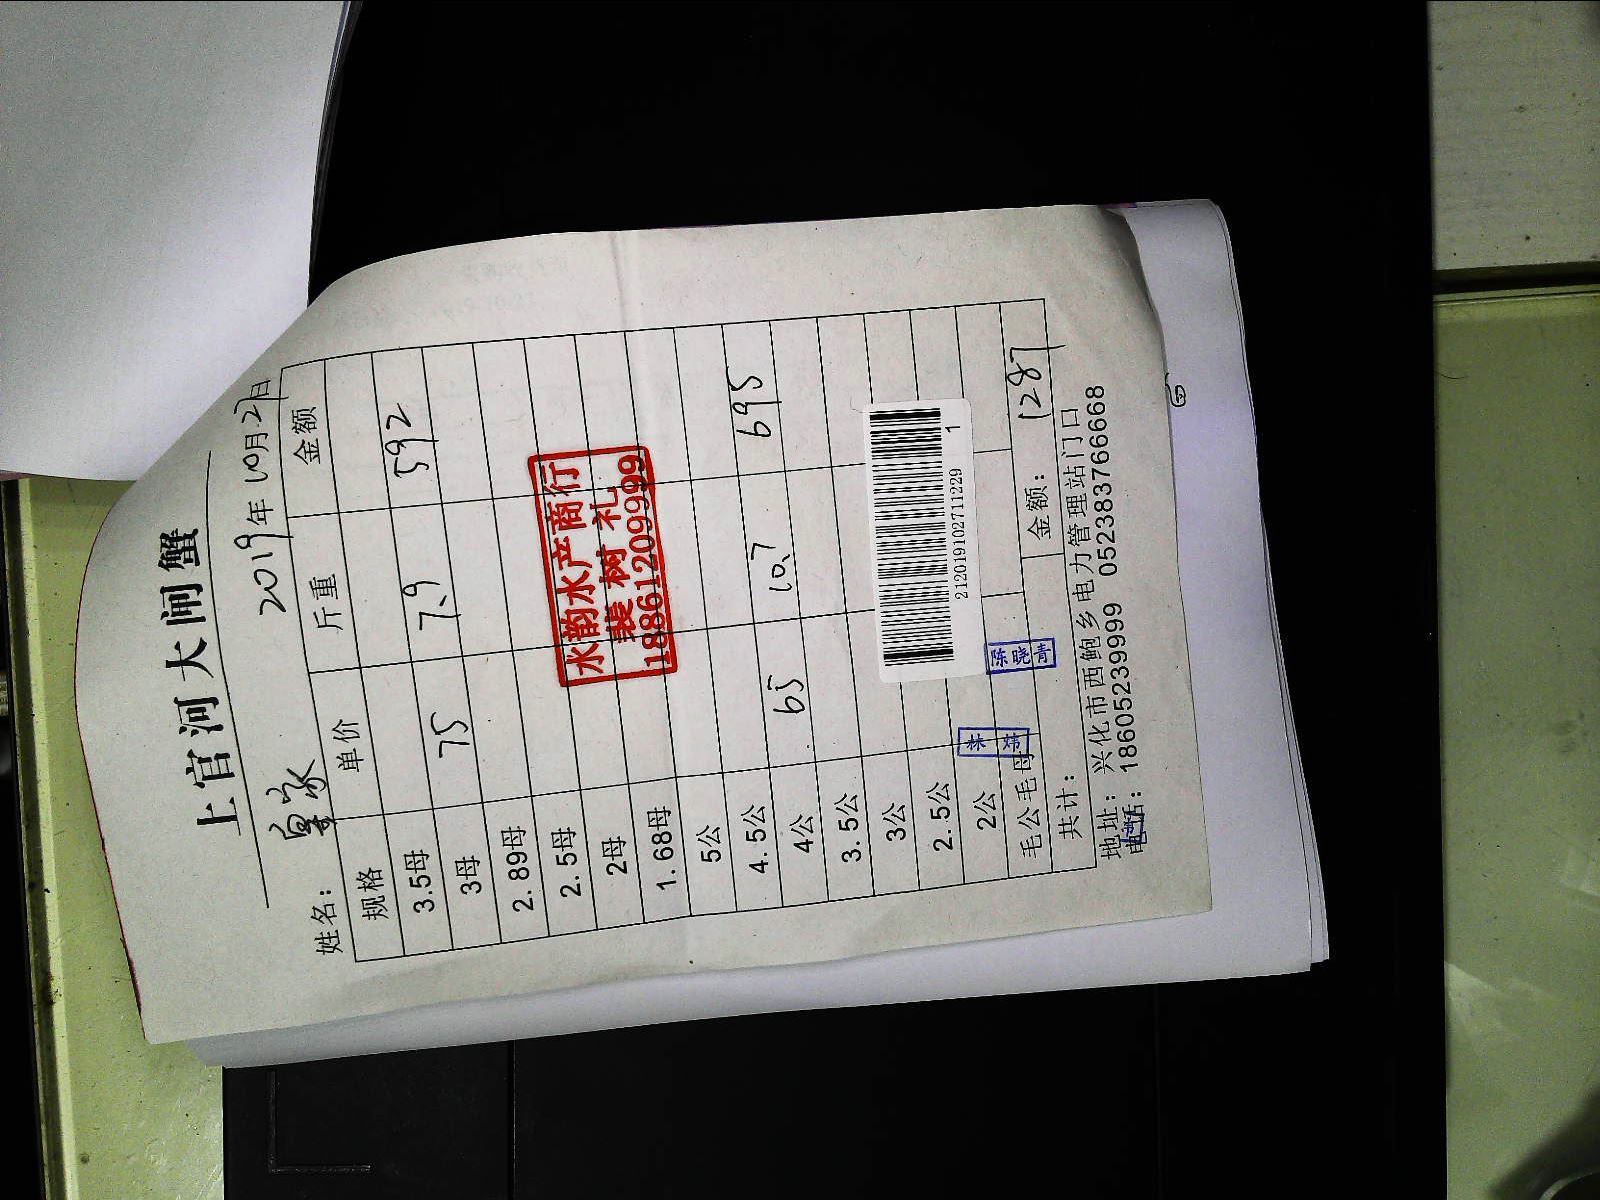 上官河大闸蟹
2019年10月27日
姓名：皇家
规格 单价 斤重 金额
3.5母
3母 75 7.9 592
2.89母
2.5母
2母
1.68母
5公
4.5公
4公 65 10.7 695
3.5公
3公
2.5公
2公
毛公毛母
共计： 金额： 1287
地址： 兴化市西鲍乡电力管理站门口
电话：18605239999 052383766668
水韵水产商行
裴树礼
18861209999
212019102711229
1
林炜
陈晓青